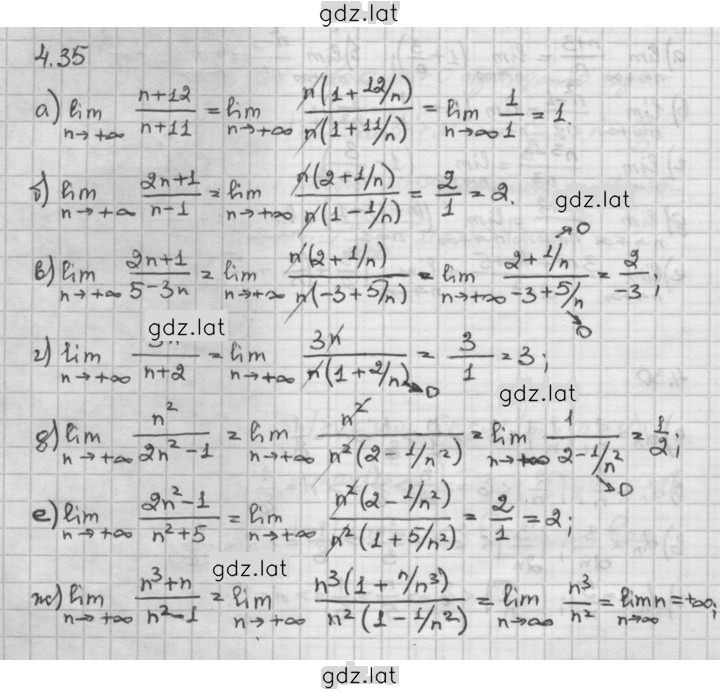 gdz.lat
4.35
а) lim n→+∞ (n+12)/(n+11) = lim n→+∞ n(1+12/n)/n(1+11/n) = lim n→∞ 1/1 = 1.
б) lim n→+∞ (2n+1)/(n-1) = lim n→+∞ n(2+1/n)/n(1-1/n) = 2/1 = 2.
gdz.lat
в) lim n→+∞ (2n+1)/(5-3n) = lim n→+∞ n(2+1/n)/n(-3+5/n) = lim n→+∞ (2+1/n→0)/(-3+5/n→0) = 2/-3;
gdz.lat
г) lim n→+∞ 3n/(n+2) = lim n→+∞ 3n/n(1+2/n→0) = 3/1 = 3;
gdz.lat
д) lim n→+∞ n²/(2n²-1) = lim n→+∞ n²/n²(2-1/n²) = lim n→+∞ 1/(2-1/n²→0) = 1/2;
е) lim n→+∞ (2n²-1)/(n²+5) = lim n→+∞ n²(2-1/n²)/n²(1+5/n²) = 2/1 = 2;
gdz.lat
ж) lim n→+∞ (n³+n)/(n²-1) = lim n→+∞ n³(1+n/n³)/n²(1-1/n²) = lim n→∞ n³/n² = lim n→∞ n = +∞;
gdz.lat